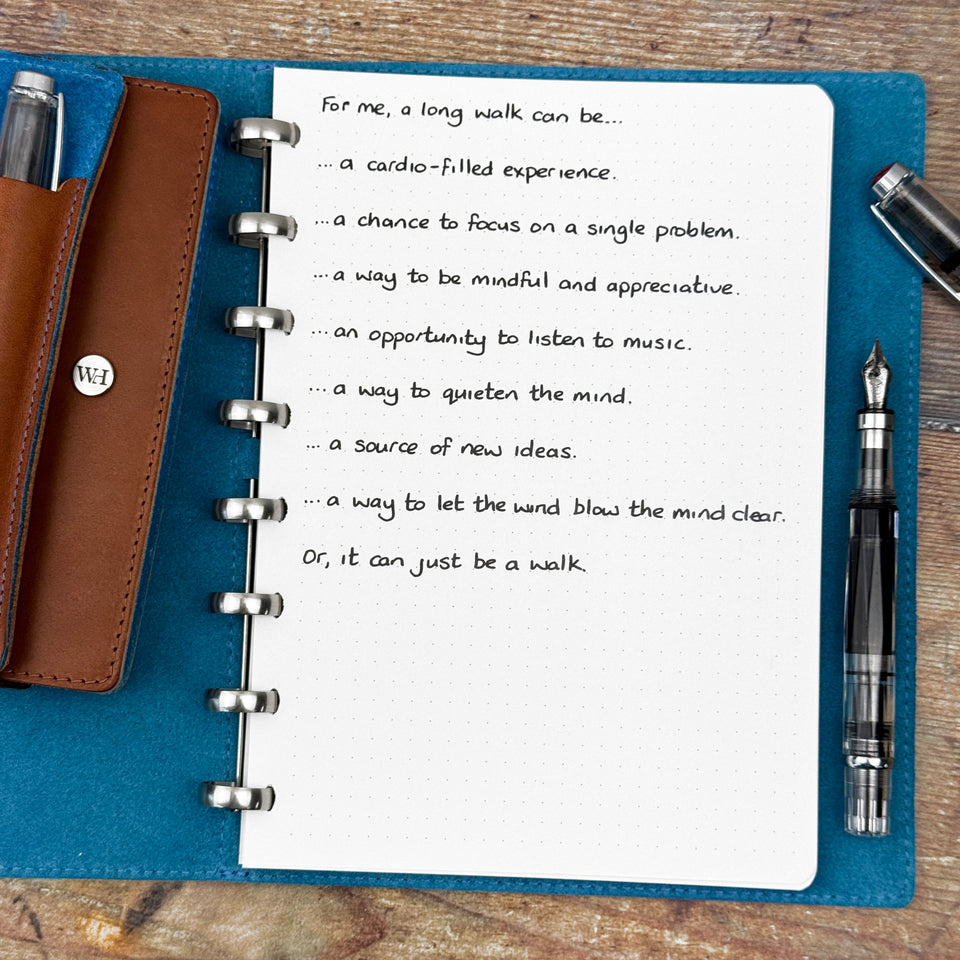 WH
For me, a long walk can be...
... a cardio-filled experience.
... a chance to focus on a single problem.
... a way to be mindful and appreciative.
... an opportunity to listen to music.
... a way to quieten the mind.
... a source of new ideas.
... a way to let the wind blow the mind clear.
Or, it can just be a walk.